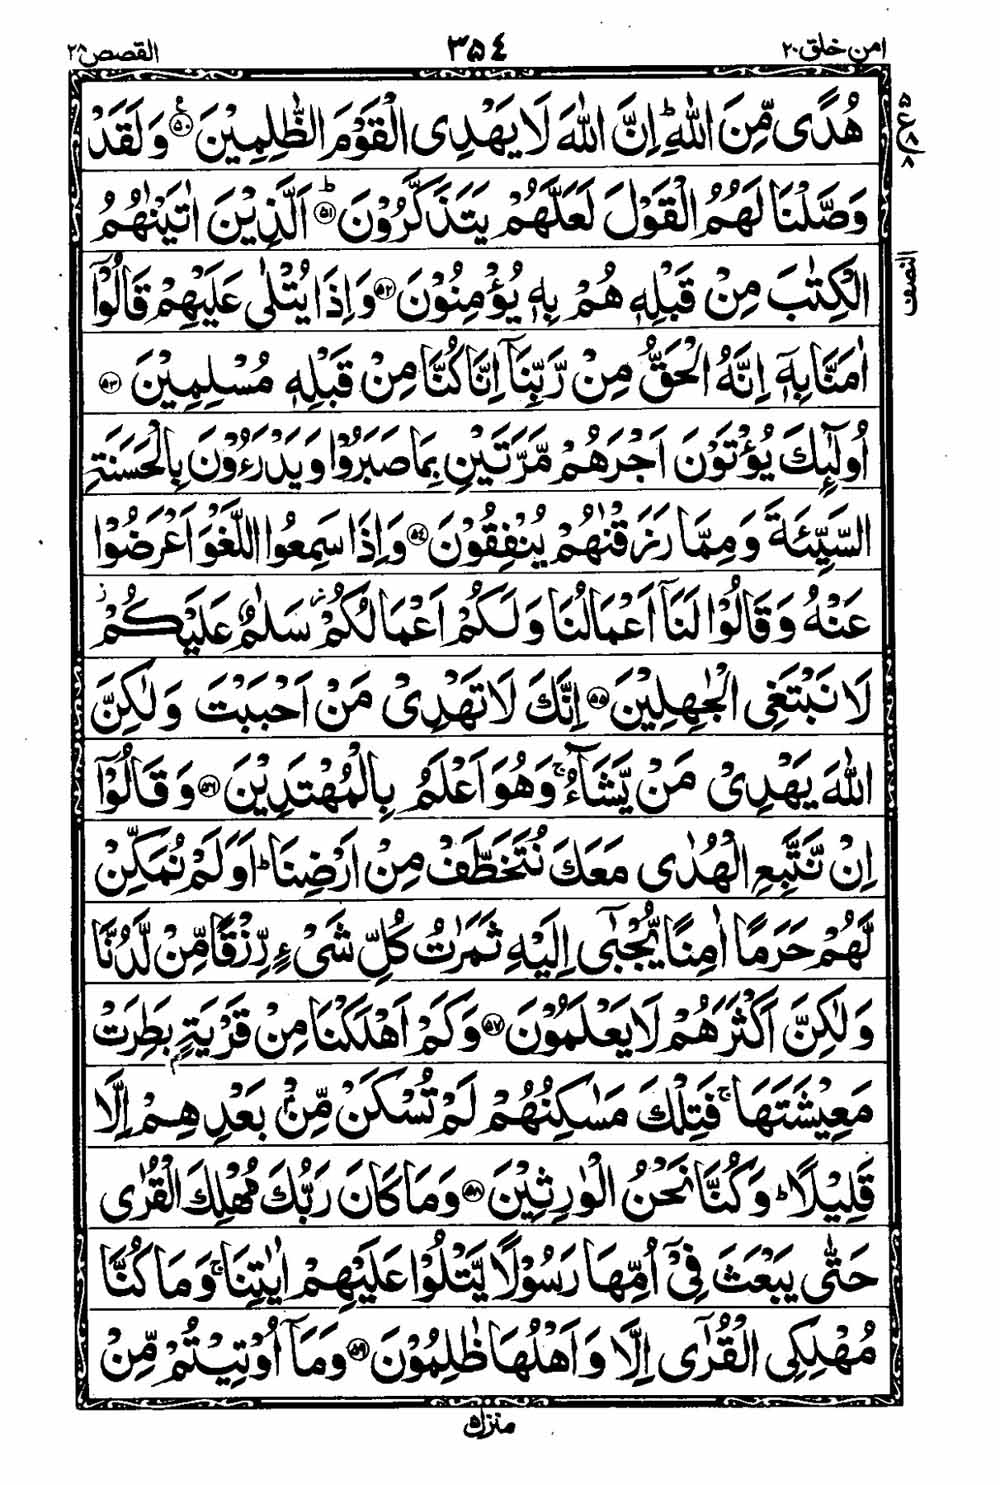 امن خلق ٢٠ ٣٥٤ القصص ٢٨
هُدًى مِّنَ اللّٰهِ ؕ اِنَّ اللّٰهَ لَا يَهْدِى الْقَوْمَ الظّٰلِمِيْنَ ﴿٥٠﴾ وَلَقَدْ
وَصَّلْنَا لَهُمُ الْقَوْلَ لَعَلَّهُمْ يَتَذَكَّرُوْنَ ﴿٥١﴾ ؕ اَلَّذِيْنَ اٰتَيْنٰهُمُ
الْكِتٰبَ مِنْ قَبْلِهٖ هُمْ بِهٖ يُؤْمِنُوْنَ ﴿٥٢﴾ وَاِذَا يُتْلٰى عَلَيْهِمْ قَالُوْٓا
اٰمَنَّا بِهٖٓ اِنَّهُ الْحَقُّ مِنْ رَّبِّنَآ اِنَّا كُنَّا مِنْ قَبْلِهٖ مُسْلِمِيْنَ ﴿٥٣﴾
اُولٰٓئِكَ يُؤْتَوْنَ اَجْرَهُمْ مَّرَّتَيْنِ بِمَا صَبَرُوْا وَيَدْرَءُوْنَ بِالْحَسَنَةِ
السَّيِّئَةَ وَمِمَّا رَزَقْنٰهُمْ يُنْفِقُوْنَ ﴿٥٤﴾ وَاِذَا سَمِعُوا اللَّغْوَ اَعْرَضُوْا
عَنْهُ وَقَالُوْا لَنَآ اَعْمَالُنَا وَلَكُمْ اَعْمَالُكُمْ ز سَلٰمٌ عَلَيْكُمْ ز
لَا نَبْتَغِى الْجٰهِلِيْنَ ﴿٥٥﴾ اِنَّكَ لَا تَهْدِىْ مَنْ اَحْبَبْتَ وَلٰكِنَّ
اللّٰهَ يَهْدِىْ مَنْ يَّشَآءُ ۚ وَهُوَ اَعْلَمُ بِالْمُهْتَدِيْنَ ﴿٥٦﴾ وَقَالُوْٓا
اِنْ نَّتَّبِعِ الْهُدٰى مَعَكَ نُتَخَطَّفْ مِنْ اَرْضِنَا ؕ اَوَلَمْ نُمَكِّنْ
لَّهُمْ حَرَمًا اٰمِنًا يُّجْبٰٓى اِلَيْهِ ثَمَرٰتُ كُلِّ شَىْءٍ رِّزْقًا مِّنْ لَّدُنَّا
وَلٰكِنَّ اَكْثَرَهُمْ لَا يَعْلَمُوْنَ ﴿٥٧﴾ وَكَمْ اَهْلَكْنَا مِنْ قَرْيَةٍۭ بَطِرَتْ
مَعِيْشَتَهَا ۚ فَتِلْكَ مَسٰكِنُهُمْ لَمْ تُسْكَنْ مِّنْۢ بَعْدِهِمْ اِلَّا
قَلِيْلًا ؕ وَكُنَّا نَحْنُ الْوٰرِثِيْنَ ﴿٥٨﴾ وَمَا كَانَ رَبُّكَ مُهْلِكَ الْقُرٰى
حَتّٰى يَبْعَثَ فِىْٓ اُمِّهَا رَسُوْلًا يَّتْلُوْا عَلَيْهِمْ اٰيٰتِنَا ۚ وَمَا كُنَّا
مُهْلِكِى الْقُرٰٓى اِلَّا وَاَهْلُهَا ظٰلِمُوْنَ ﴿٥٩﴾ وَمَآ اُوْتِيْتُمْ مِّنْ
٥
ع ٨
٨
النصف
منزل ٥